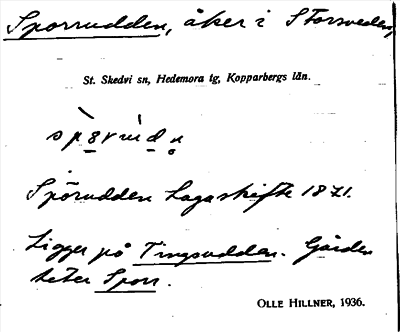 Sporrudden, åker i Storsveden,
St. Skedvi sn, Hedemora tg, Kopparbergs län.
Spörudden Lagaskifte 1871.
Ligger på Tingsudden. Gården
heter Sporr.
OLLE HILLNER, 1936.